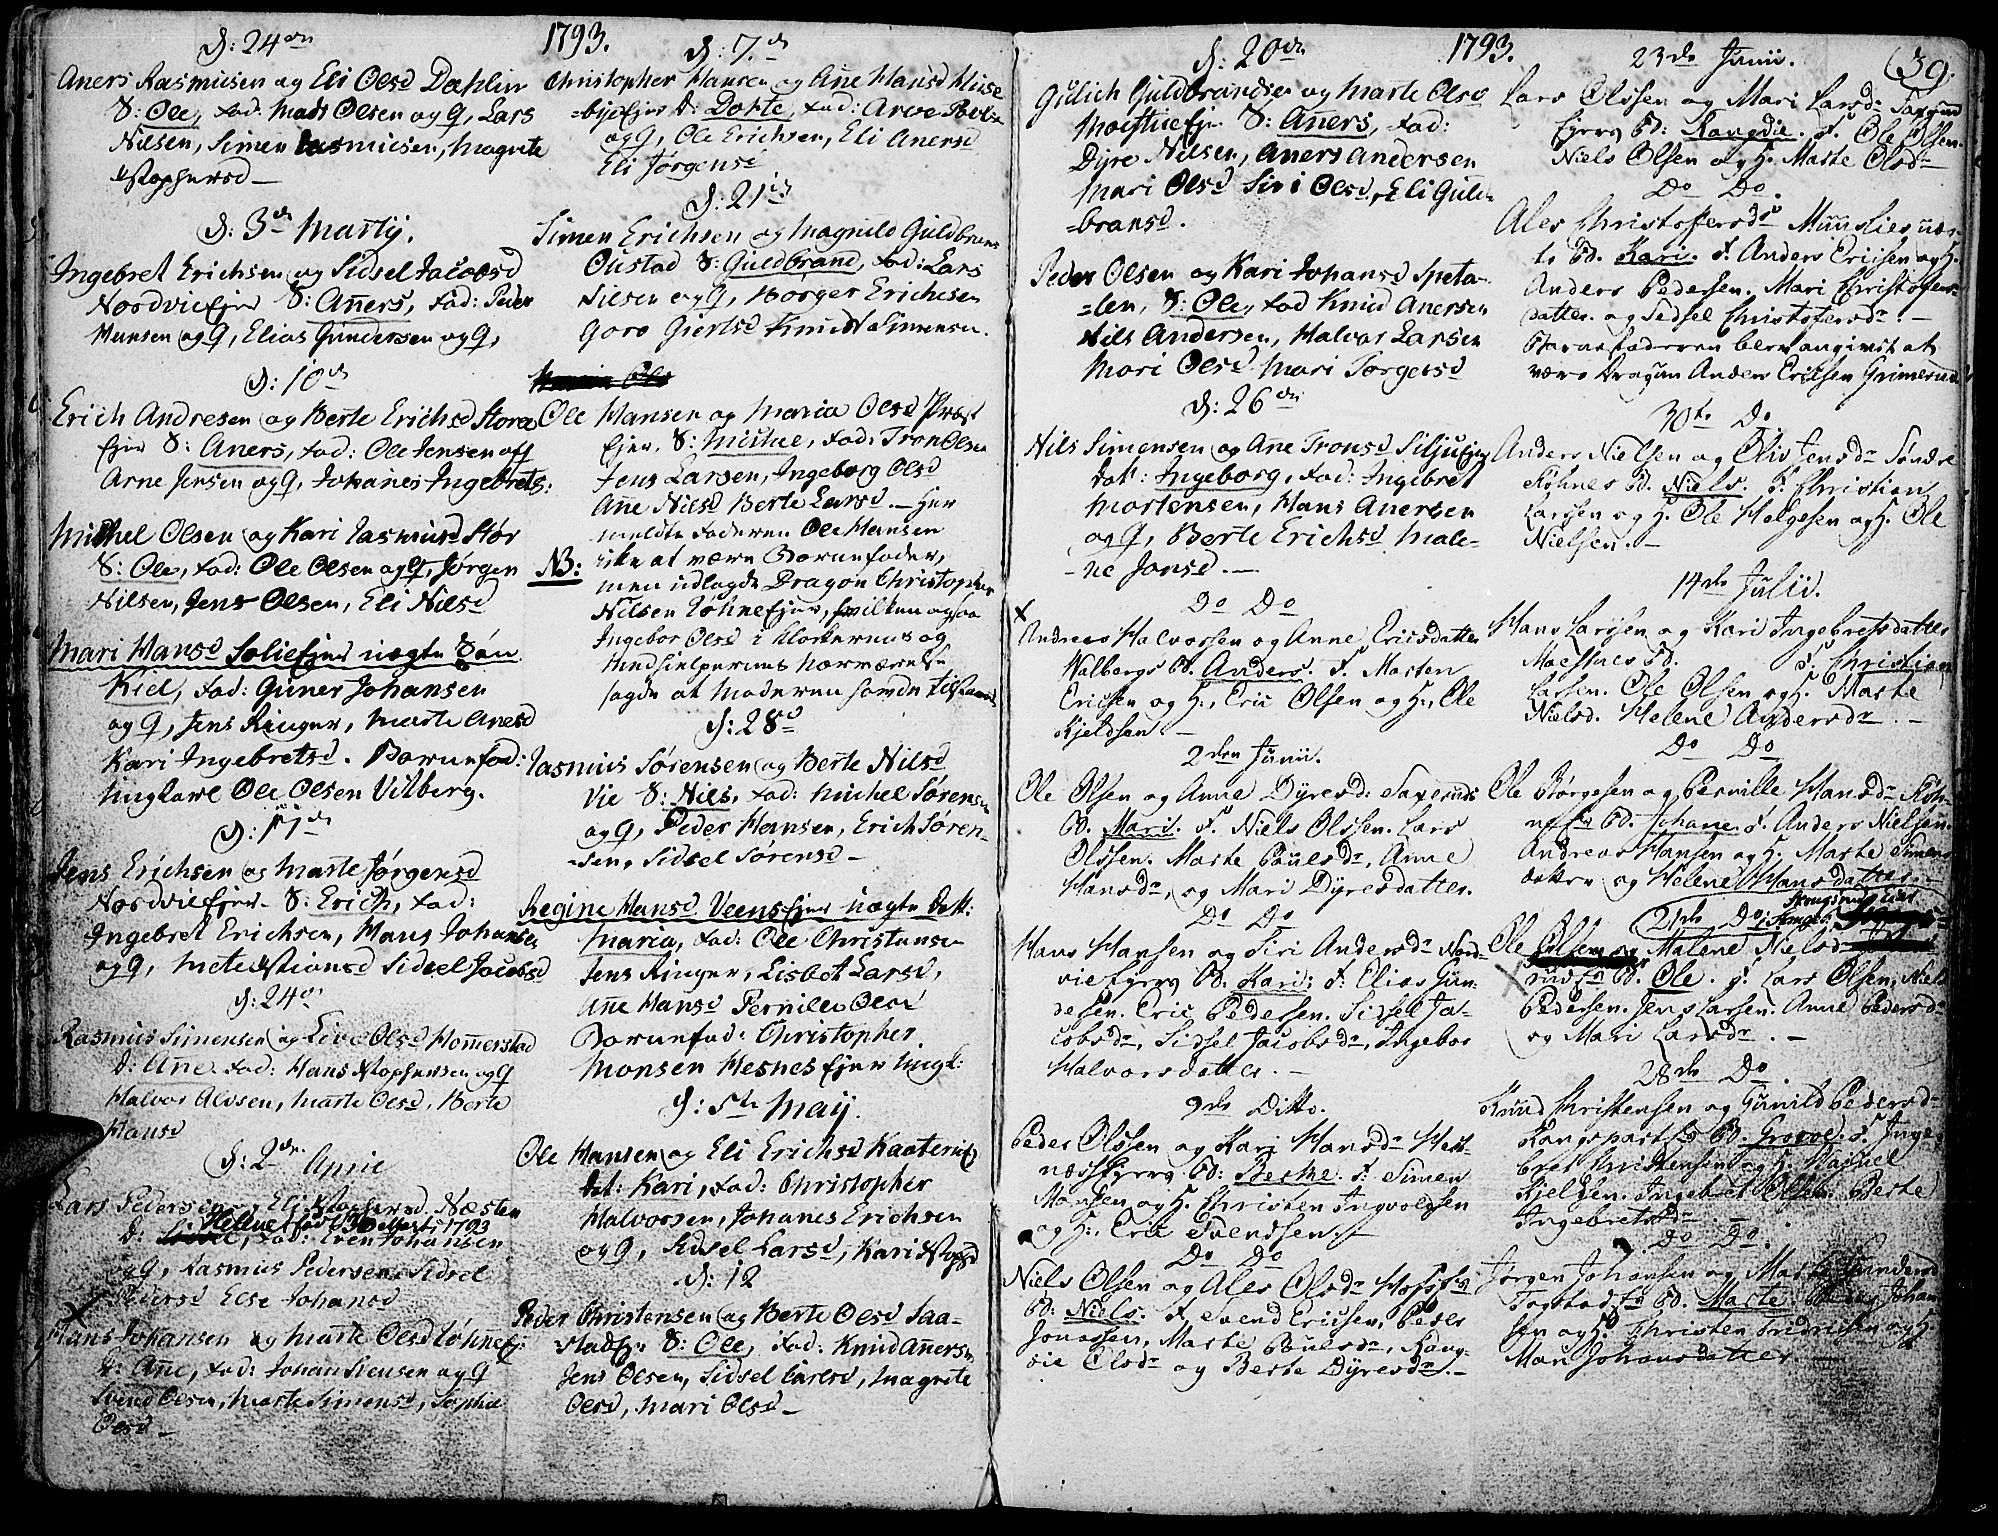 1793.
d: 24de
Aners Rasmusen og Eli Olsd Dæhlin
S: Ole, fad: Mads Olsen og Q, Lars
Nilsen, Simen Rasmusen, Magrete
Stophersd —
d: 3de Martij.
Ingebret Erichsen og Sidsel Jacobsd
Nordvieejer S: Añers, fad: Peder
Hansen og Q, Elias Gundersen og Q,
d: 10de
Erich Andresen og Berte Erichsd Stora
ejer S: Aners, fad: Ole Jensen og Q
Arne Jensen og Q, Johanes Ingebrets:
Michel Olsen og Kari Rasmusd Stor
S: Ole, fad: Ole Olsen og Q, Jørgen
Nilsen, Jens Olsen, Eli Nilsd
Mari Hansd Solieejer uægte Søn
Kiel, fad: Guner Johansen
og Q, Jens Ringer, Marte Anersd
Kari Ingebretsd. Barnefad:
Ungkarl Ole Olsen Vilberg.
d: 17de
Jens Erichsen og Marte Jørgensd
Nordvieejer S: Erich, fad:
Ingebret Erichsen, Hans Johansen
og Q, Mete Stiansd Sidsel Jacobsd
d: 24de
Rasmus Simensen og Live Olsd Homerstad
D: Añe fad: Hans Stophersen og Q
Halvor Alvsen, Marte Olsd, Berte
Hansd
d: 2den April
Lars Pedersen, Eli Stophersd Næsten
Helene fød 30 Mart 1793
D: fad: Even Johansen
og Q, Rasmus Pedersen, Sidsel
Pedersd Else Johansd
Hans Johansen og Marte Olsd Løhneej:
D: Añe, fad: Johan Stensen og Q
Svend Olsen, Marte Simensd, Sophie
Olsd —
d: 7de
Christopher Hansen og Añe Hansd Muse-
=byeejer D: Dorte, fad: Arve Povels
og Q, Ole Erichsen, Eli Anersd
Eli Jørgensd
d: 21de
Simen Erichsen og Magnild Guldbrans
Oustad S: Guldbrand, fad: Lars
Nilsen og Q, Børger Erichsen
Goro Giertsd Knud Simensen.
Ole Hansen og Maria Olsd Præst
ejer, S: Michel, fad: Tron Olsen
Jens Larsen, Ingeborg Olsd
Añe Nilsd Berte Larsd. — Her
meldte faderen Ole Hansen
NB: ikke at være Barnefader,
men udlagde Dragon Christopher
Nilsen Løhneejer, hvilken ogsaa
Ingebor Olsd i Klokkerens og
Medhielperens nærværelse
sagde at Moderen havde tilstaaet
d: 28d
Rasmus Sørensen og Berte Nilsd
Vie S: Nils, fad: Michel Sørensen
og Q, Peder Hansen, Erich Søren-
=sen, Sidsel Sørensd —
Regine Hansd Veensejer uægte Datt:
Maria, fad: Ole Christansen
Jens Ringer, Lisbet Larsd,
Añe Hansd Pernille Olsd
Barnefad: Christopher
Monsen Hesnesejer Ungk:
d: 5te Maij.
Ole Hansen og Eli Erichsd Kaaterud
Dat: Kari, fad: Christopher
Halvorsen, Johanes Erichsen
og Q, Sidsel Larsd, Kari Stophsd
d: 12
Peder Christensen og Berte Olsd Saa-
=stadejer S: Ole, fad: Knud Añersen
Jens Olsen, Sidsel Larsd, Magrete
Olsd, Mari Olsd —
1793.
d: 20de
Gulich Guldbrandsen og Marte Olsd
Moestueejer S: Añers, fad:
Dyre Nilsen, Aners Andersen
Mari Olsd Siri Olsd, Eli Guld-
=bransd.
Peder Olsen og Kari Johansd Speta-
=len, S: Ole, fad Knud Anersen
Nils Andersen, Halvor Larsen
Mari Olsd Mari Torgersd
d: 26de
Nils Simensen og Añe Tronsd Siljuejer
Dat: Ingeborg, fad: Ingebret
Mortensen, Hans Anersen
og Q, Berte Erichsd Male-
-ne Jonsd. —
Do Do
Andreas Halvorsen og Anne Ericsdatter
Walbergs Bd. Anders. F. Marten
Ericsen og H., Eric Olsen og H., Ole
Kjeldsen. —
2den Junii.
Ole Olsen og Anne Dyresd: Saxerud
Bd. Mari. F. Niels Olssen. Lars
Olssen. Marte Poulsdr, Anne
Hansdr, og Mari Dyresdatter.
Do Do
Hans Hansen og Siri Andersdr Nord-
vie Eyers Bd. Kari: F: Elias Gun-
desen. Eric Pedersen. Sidsel Ja-
cobsdr, Sidsel Jacobsdr, Ingebor
Halvorsdatter. —
9de Ditto.
Peder Olssen og Kari Hansdr Hest-
næsEyers Bd: Berthe. F. Simen
Monsen og H. Christen Ingvoldsen
og H., Eric Svendsen. —
Do Do
Niels Olsen og Ales Olsdr Hofs
Bd: Niels. F. Svend Ericsen, Peder
Jonassen, Marte Poulsdr, Rang-
vie Olsdr og Berte Dyresdr. —
39.
23de Junii.
Lars Olssen og Mari Larsdr Saxrud
Eyers Bd: Rangvie. F. Ole Olsen.
Niels Olsen og H. Marte Olsdr
Do Do.
Ales Christoffersdr Munslies uæg-
te Bd. Kari. F. Anders Ericsen og H.
Anders Pedersen. Mari Christofers-
datter og Sidsel Christofersdr. —
Barnefaderen blev angivet at
være Dragun Anders Ericsen Grimerud
30te Do
Anders Nielsen og Oliv Jensdr Søndre
Kohnes Bd. Niels. F. Christian
Larssen og H. Ole Helgesen og H. Ole
Nielsen. —
14de Julii.
Hans Larssen og Kari Ingebretsdatter
Moestues Bd. F. Christian
Larsen. Ole Olsen og H. Marte
Nielsd. Helene Andersdr. —
Do Do
Ole Børgesen og Pernille Hansdr Røh-
ne Bd. Johane. F. Anders Nielsen.
Andreas Hansen og H. Marte Simens
datter og Helene Hansdatter. —
21de Do
Ole Olsen og Malene Nielsd
rud Bd. Ole. F. Lars Olsen, Niels
Pedersen. Jens Larsen. Anne Pedersdr
og Mari Larsdr. —
28de Do.
Knud Christensen og Gunild Pedersdr
Bd. Groved. F. Inge-
bret Christensen og H. Michel
Kjeldsen. Ingebret Olsen. Berte
Ingebretsdr. —
Do Do.
Jørgen Johansen og Marte Gundersd
Togstad Bd. Marte. Johan-
sen og H. Christen Fridricsen og H.
Mari Johansdatter. —